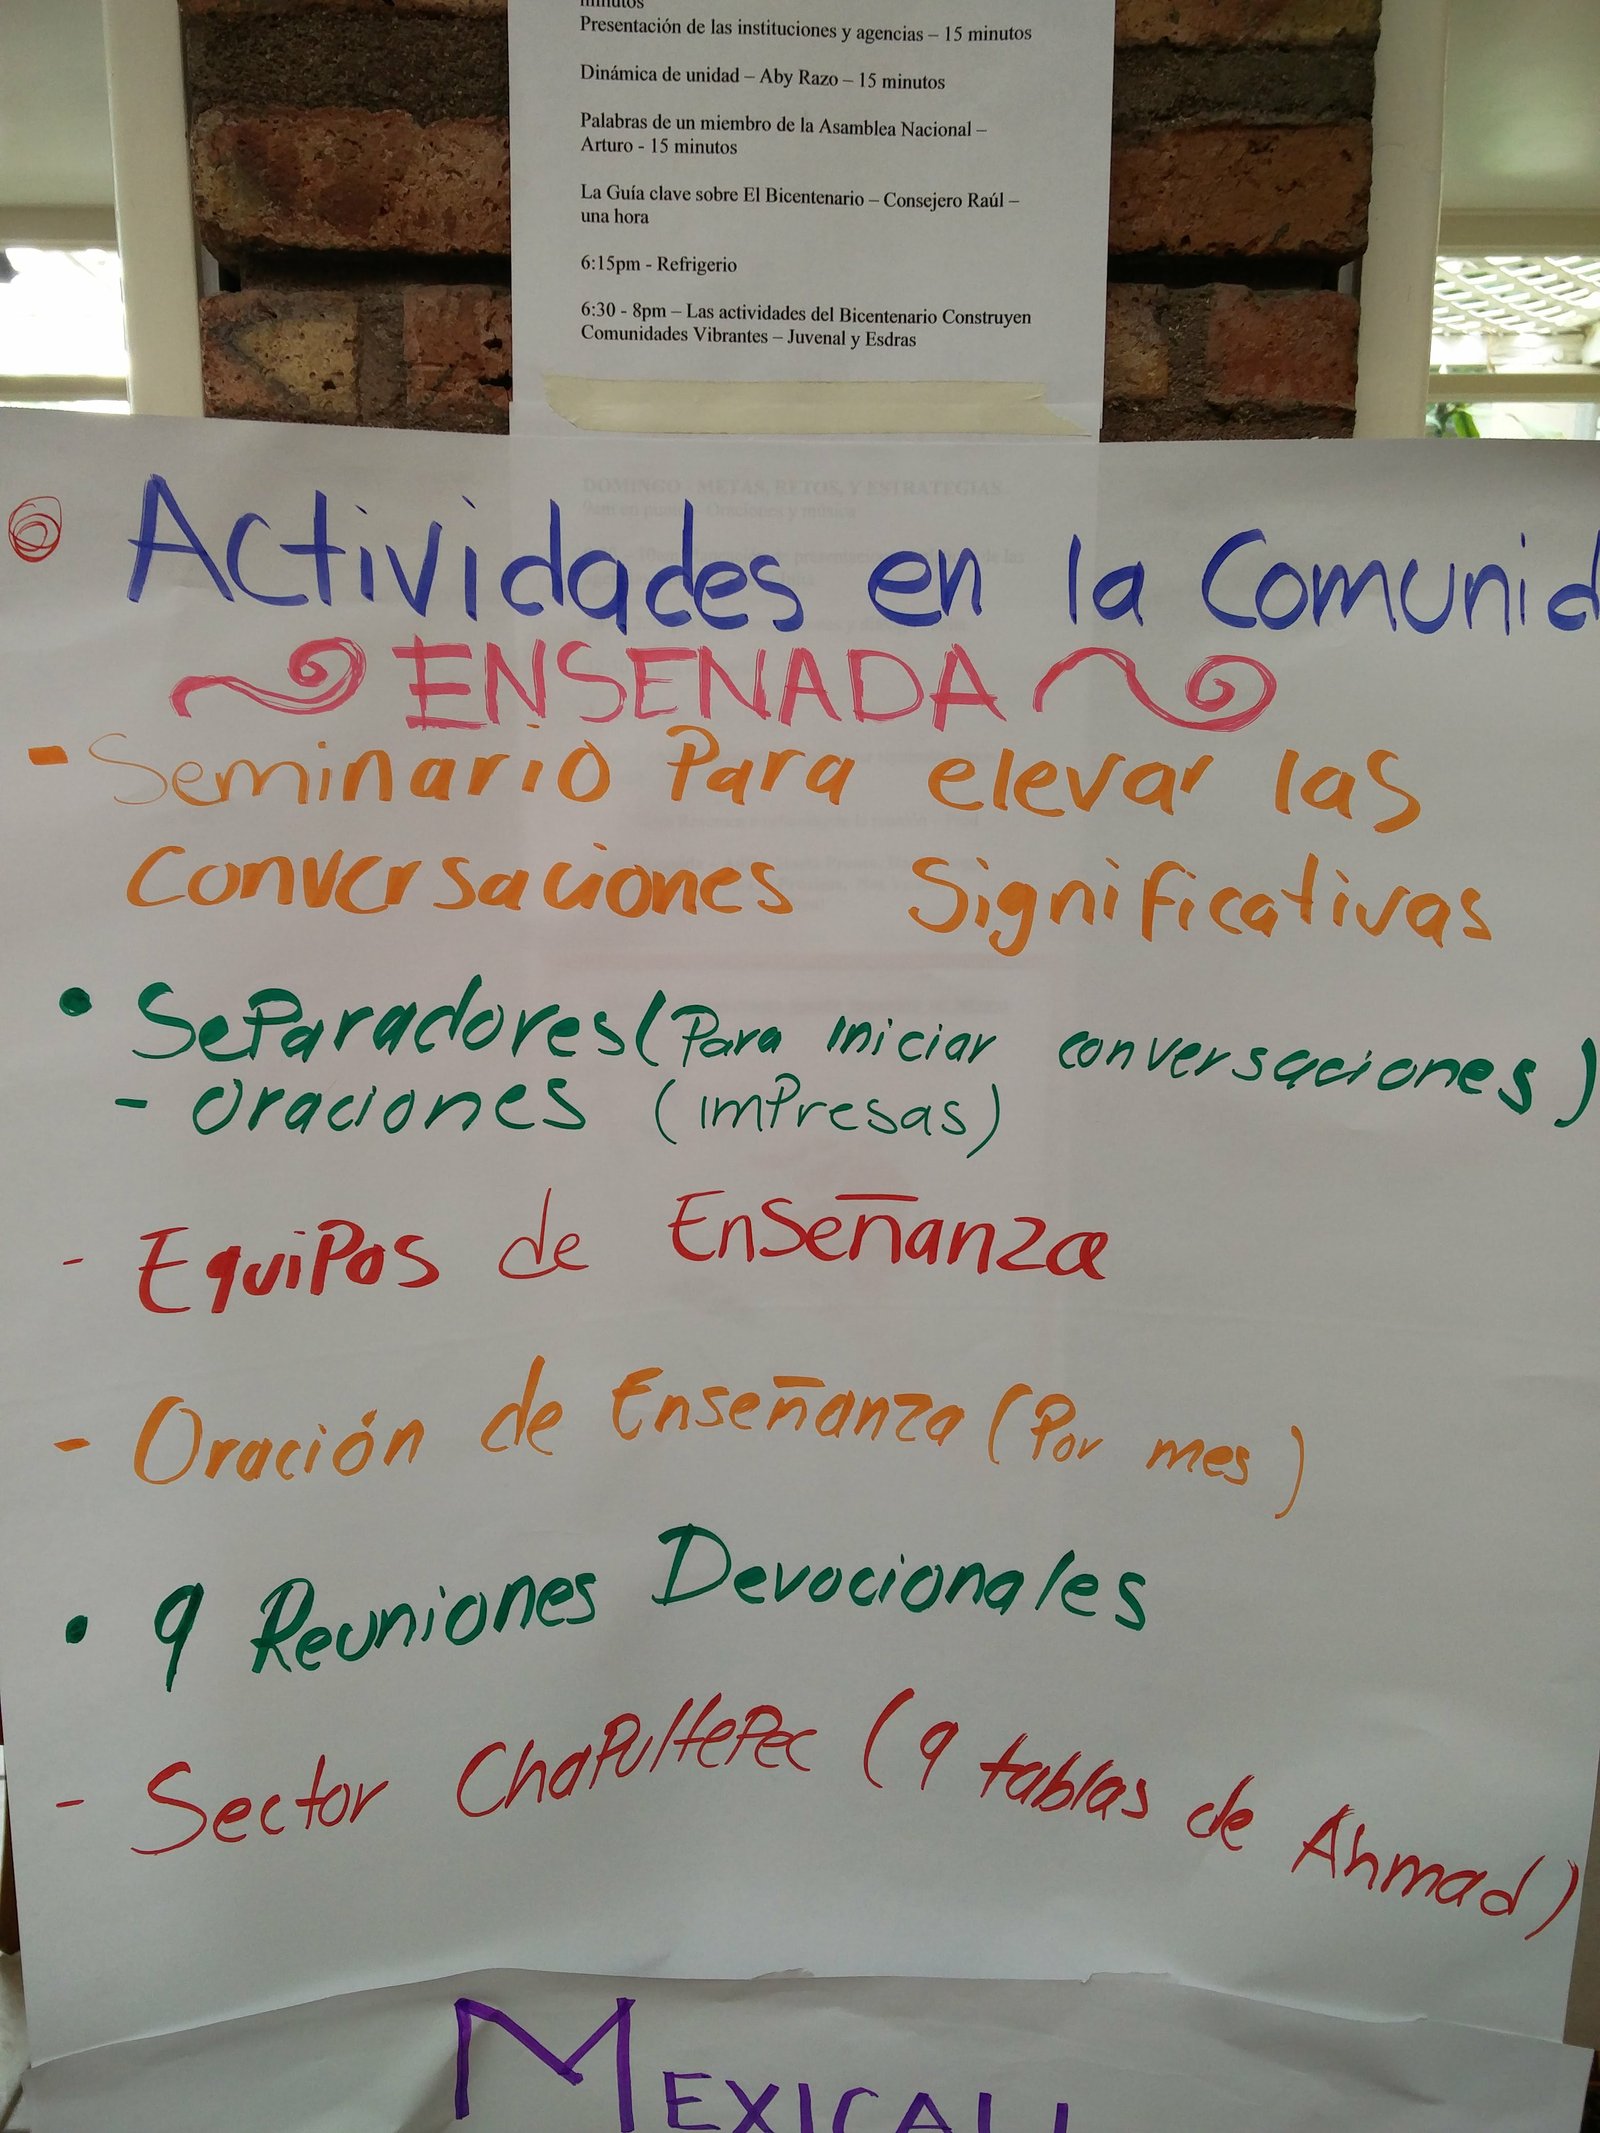 minutos
Presentación de las instituciones y agencias – 15 minutos
Dinámica de unidad – Aby Razo – 15 minutos
Palabras de un miembro de la Asamblea Nacional –
Arturo - 15 minutos
La Guía clave sobre El Bicentenario – Consejero Raúl –
una hora
6:15pm - Refrigerio
6:30 - 8pm – Las actividades del Bicentenario Construyen
Comunidades Vibrantes – Juvenal y Esdras
DOMINGO - METAS, RETOS, Y ESTRATEGIAS
Actividades en la Comunid
ENSENADA
- Seminario Para elevar las
Conversaciones Significativas
• Separadores (Para iniciar conversaciones)
- Oraciones (impresas)
- Equipos de Enseñanza
- Oración de Enseñanza (Por mes)
• 9 Reuniones Devocionales
- Sector Chapultepec (9 tablas de Ahmad)
MEXICALI